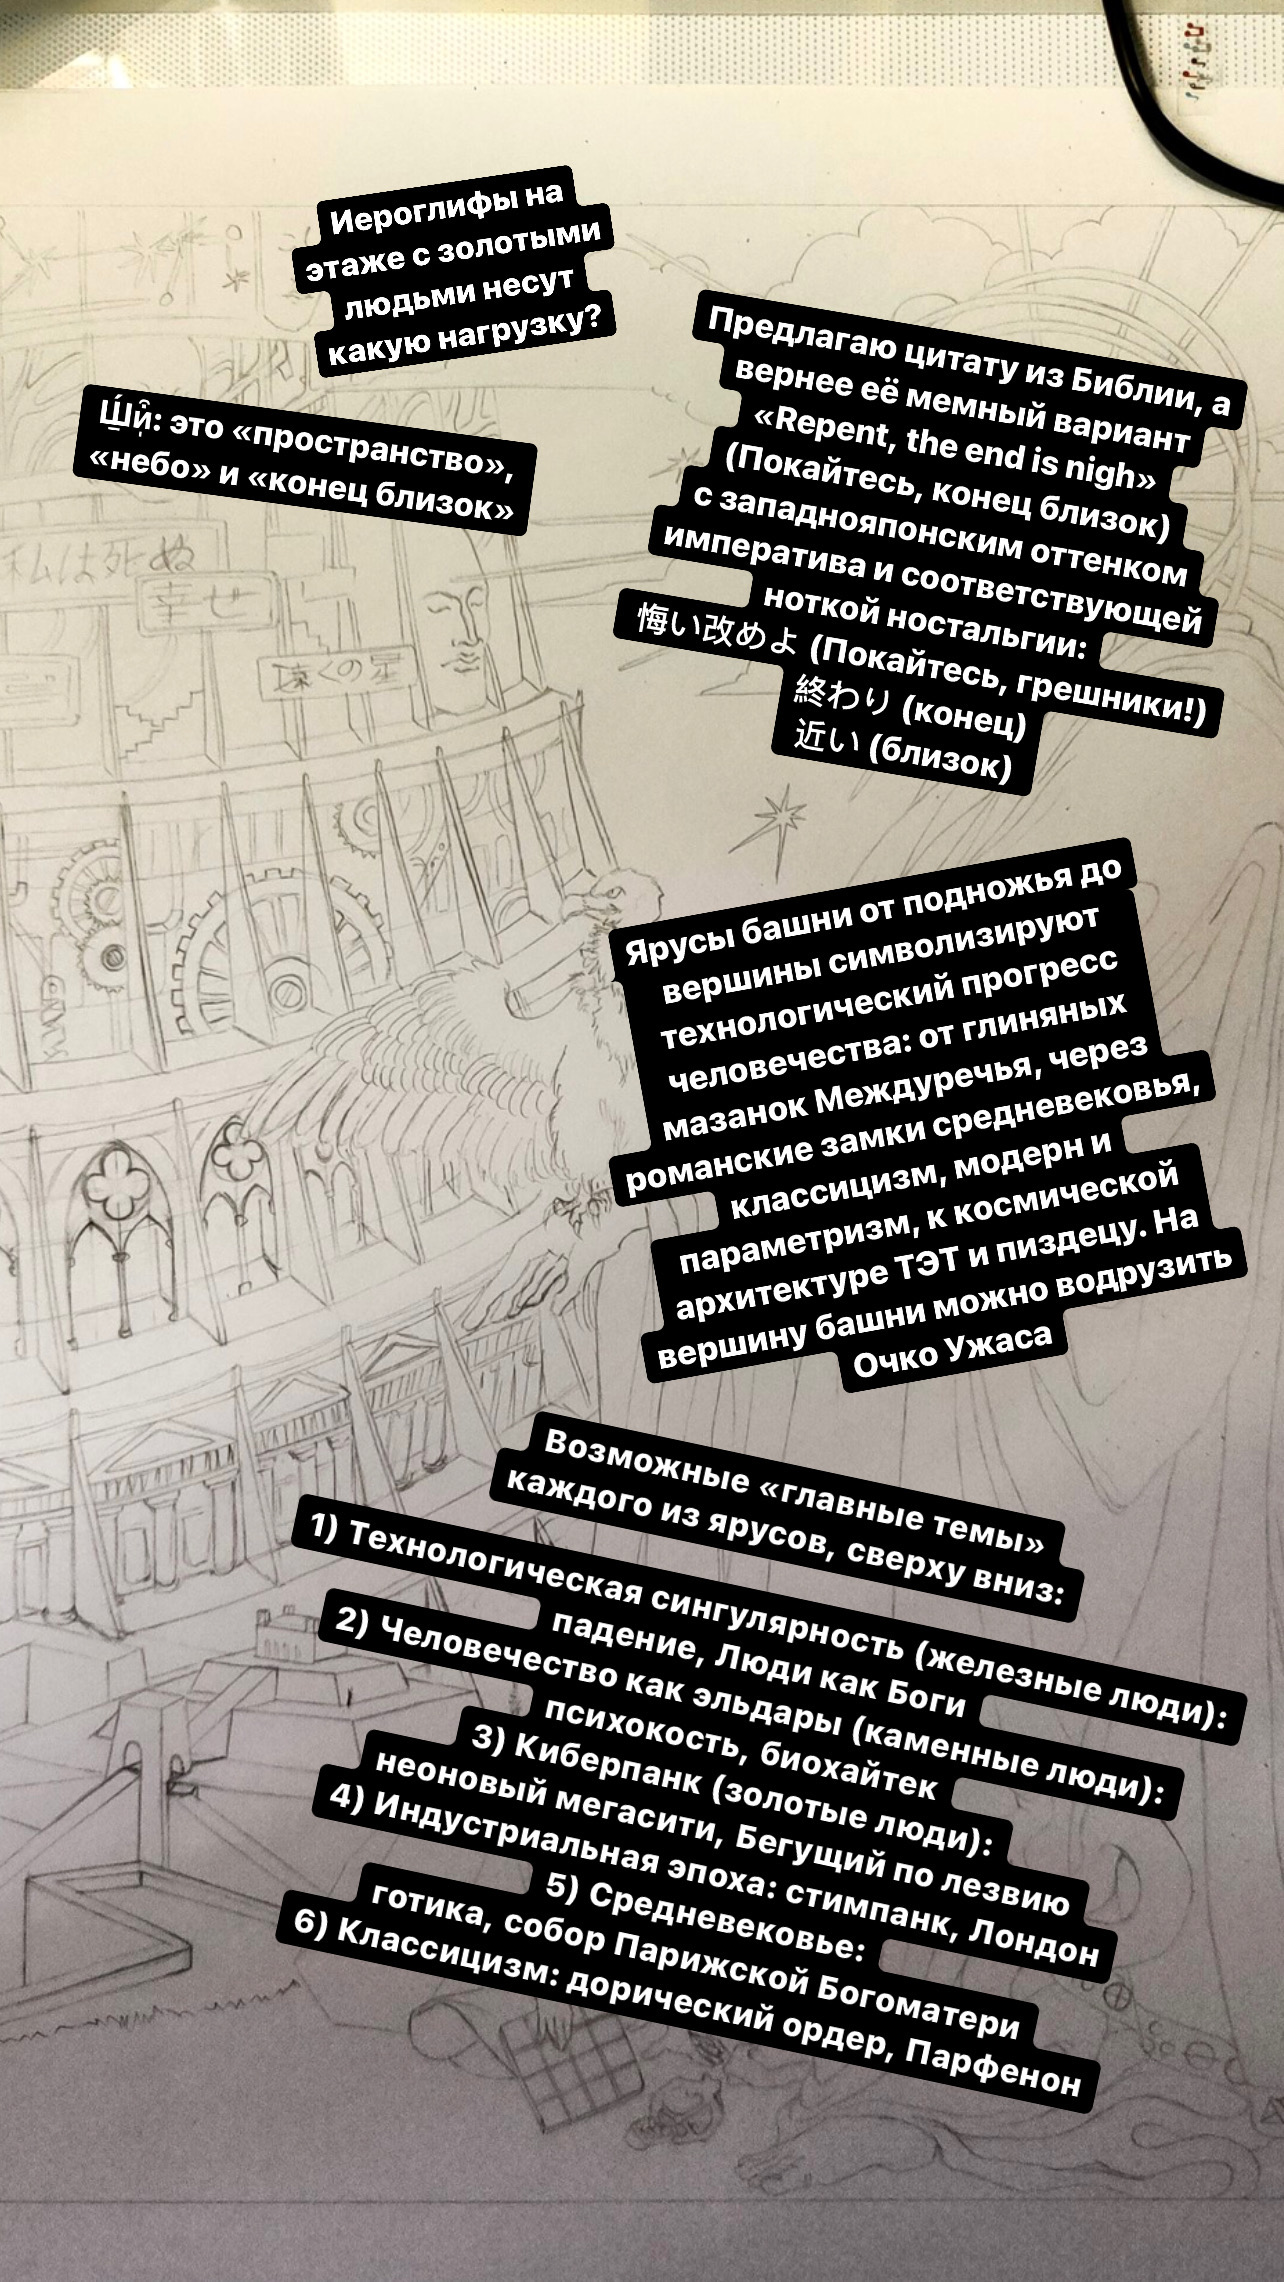 Иероглифы на
этаже с золотыми
людьми несут
какую нагрузку?
Предлагаю цитату из Библии, а
вернее её мемный вариант
«Repent, the end is nigh»
(Покайтесь, конец близок)
с западнояпонским оттенком
императива и соответствующей
ноткой ностальгии:
悔い改めよ (Покайтесь, грешники!)
終わり (конец)
近い (близок)
это «пространство»,
«небо» и «конец близок»
私は死ぬ
幸せ
遠くの星
Ярусы башни от подножья до
вершины символизируют
технологический прогресс
человечества: от глиняных
мазанок Междуречья, через
романские замки средневековья,
классицизм, модерн и
параметризм, к космической
архитектуре ТЭТ и пиздецу. На
вершину башни можно водрузить
Очко Ужаса
Возможные «главные темы»
каждого из ярусов, сверху вниз:
1) Технологическая сингулярность (железные люди):
падение, Люди как Боги
2) Человечество как эльдары (каменные люди):
психокость, биохайтек
3) Киберпанк (золотые люди):
неоновый мегасити, Бегущий по лезвию
4) Индустриальная эпоха: стимпанк, Лондон
5) Средневековье:
готика, собор Парижской Богоматери
6) Классицизм: дорический ордер, Парфенон